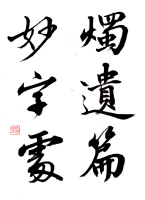 燭遺篇
妙字處